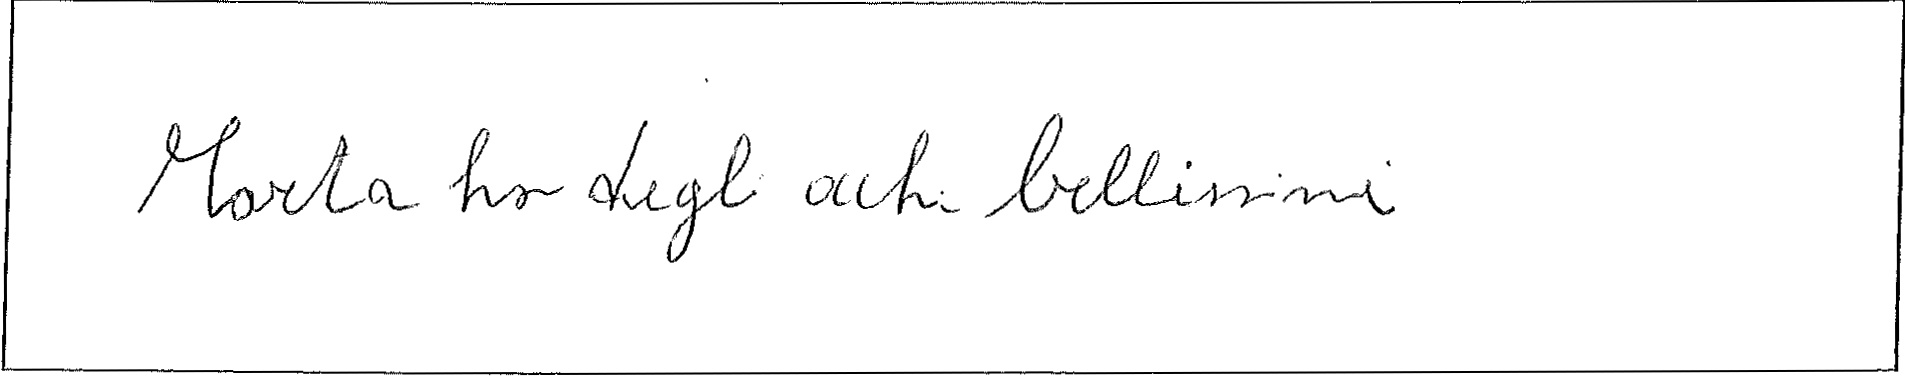 Marta ha degli occhi bellissimi